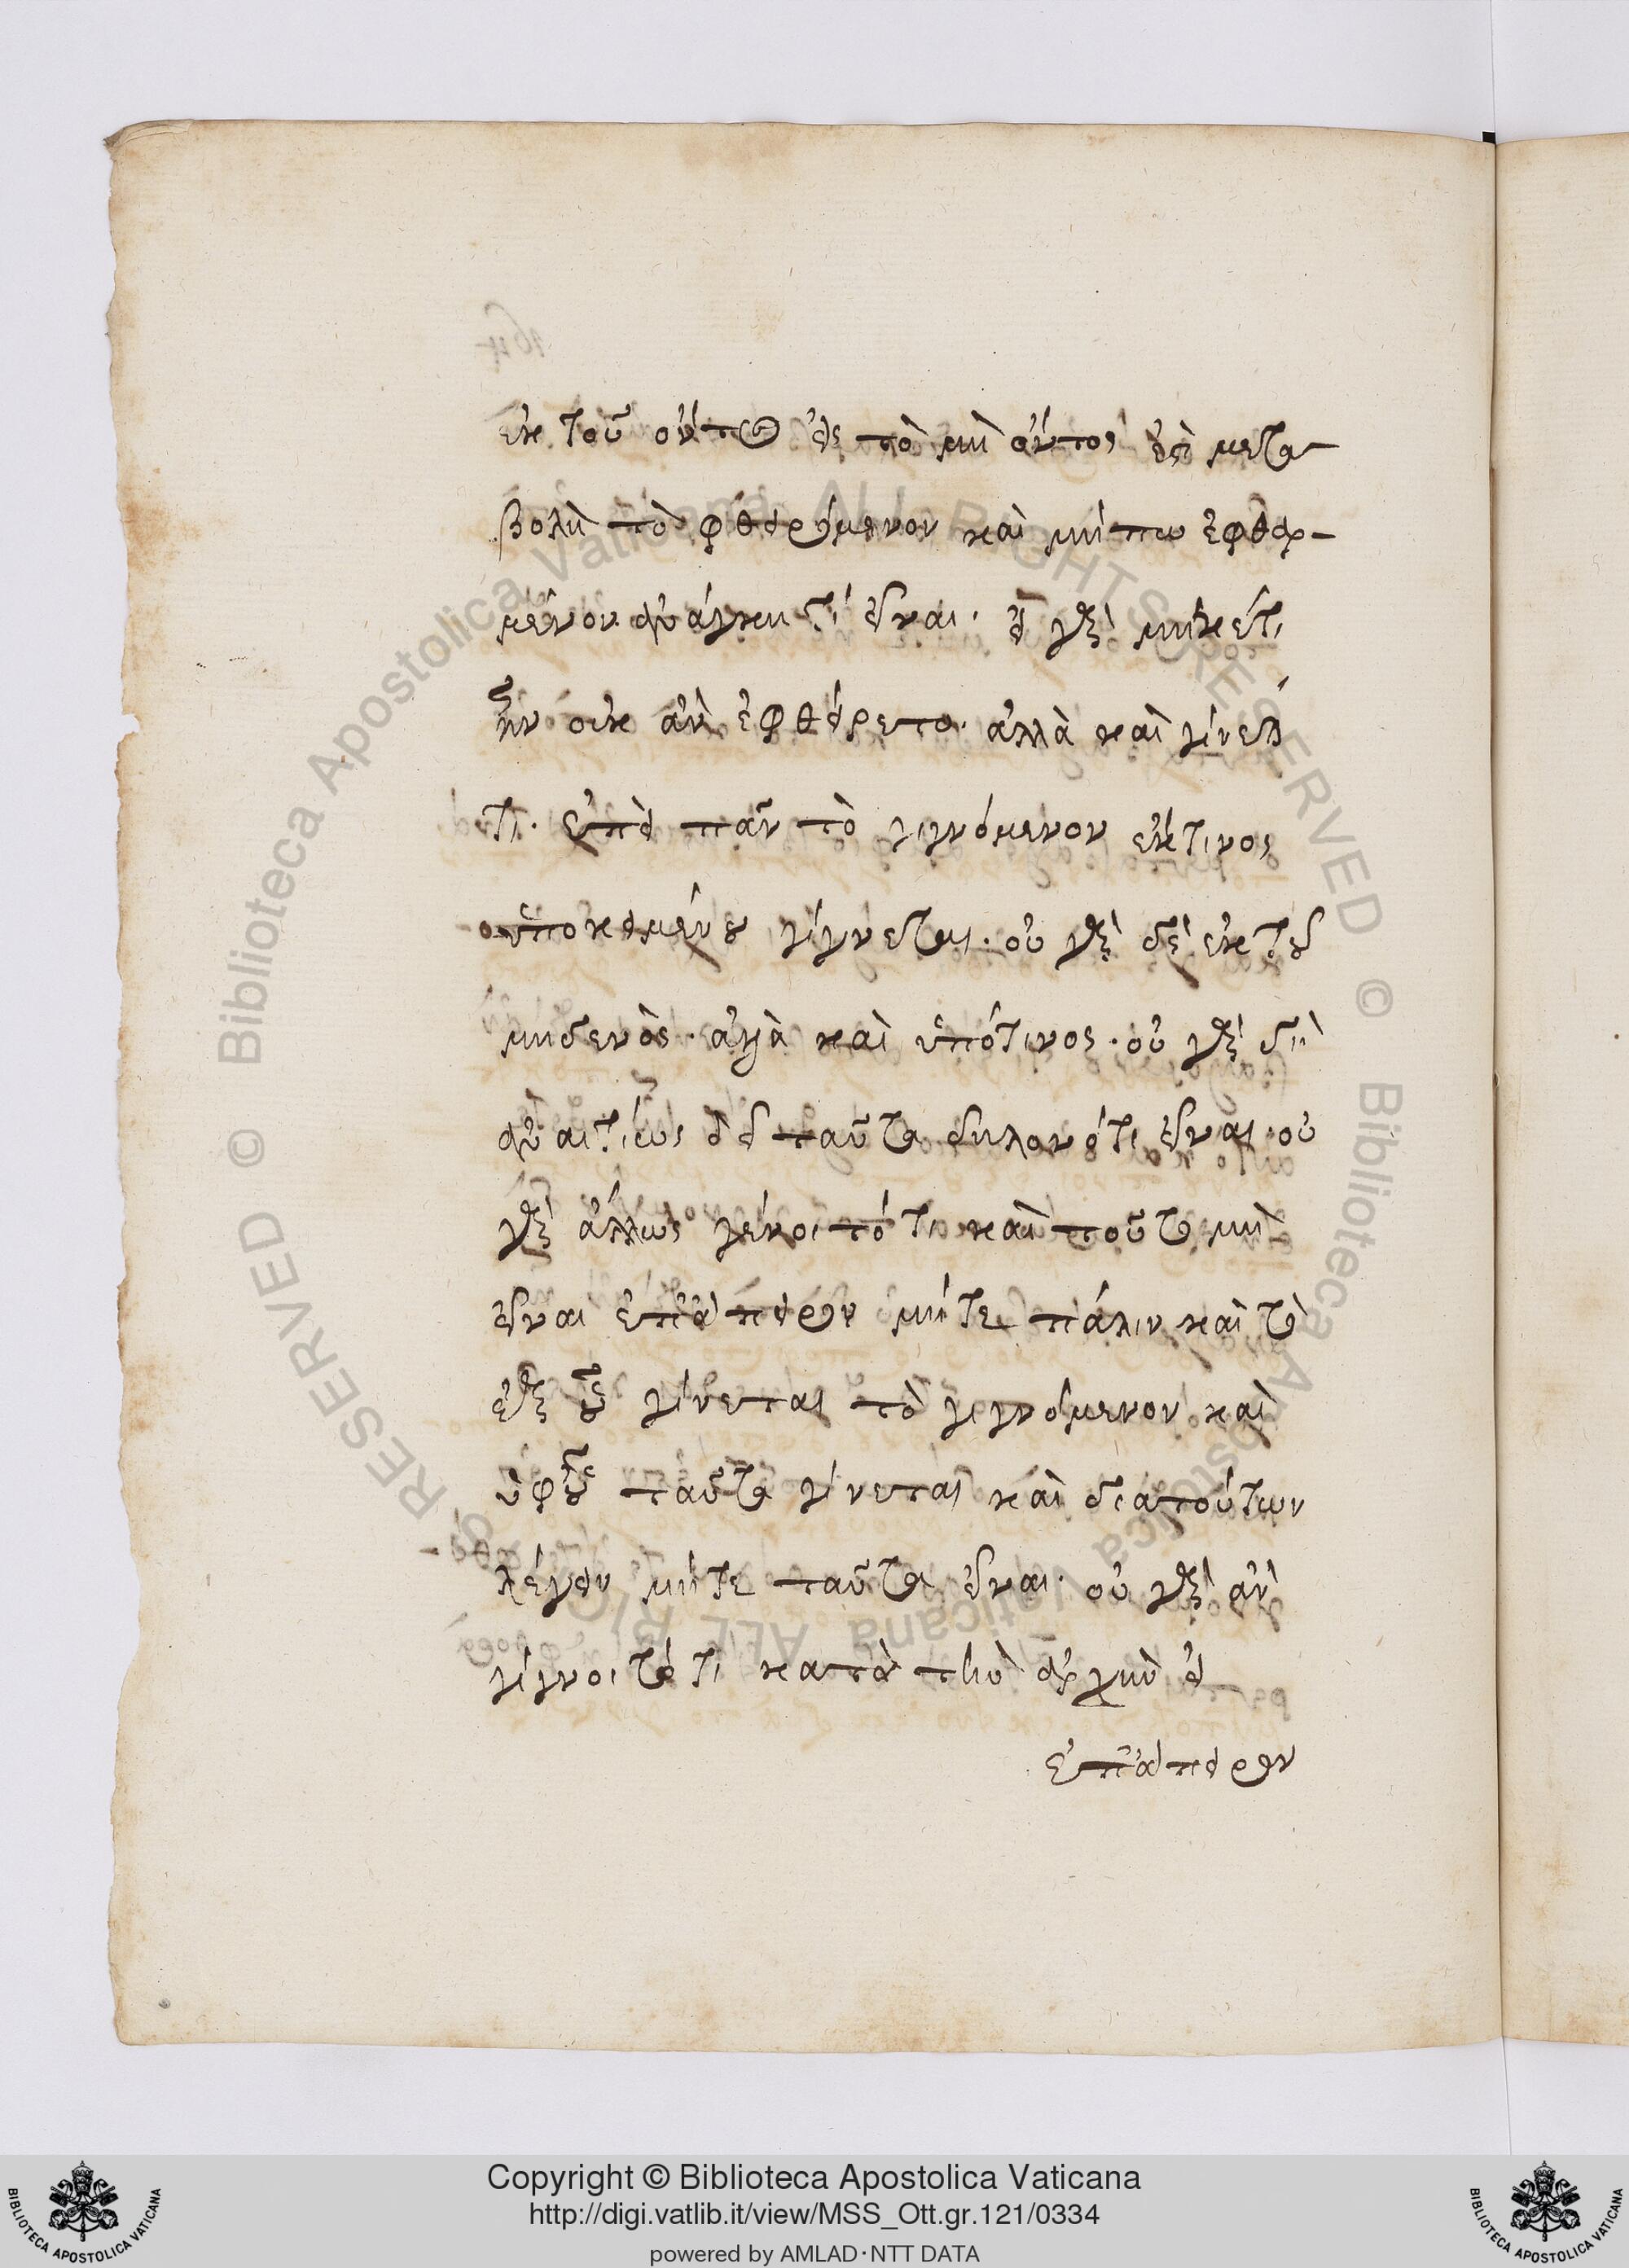 ἐκ τοῦ ὄντος εἰς τὸ μὴ ὄντος ἐστὶ μετα-
βολὴ τὸ φθειρόμενον καὶ μήπω ἐφθαρ-
μένον ἀνάγκη τί εἶναι. εἰ γὰρ μηκέτι
ἦν οὐκ ἂν ἐφθείρετο. ἀλλὰ καὶ γίνεται
τι. ἐπεὶ πᾶν τὸ γιγνόμενον ἐκ τινος
ὑποκειμένου γίγνεται. οὐ γὰρ δὲ ἐκ τοῦ
μηδενὸς. ἀλλὰ καὶ ὑπό τινος. οὐ γὰρ δὴ
ἀναιτίως δεῖ ταῦτα δηλονότι εἶναι. οὐ
γὰρ ἄλλως γένοιτό τι καὶ τούτω μὴ
εἶναι ἐπ' ἄπειρον μήτε πάλιν καὶ τὸ
ἐξ οὗ γίνεται τὸ γιγνόμενον καὶ
ὑφ' οὗ ταῦτα γίνεται καὶ δια τούτων
λέγειν μήτε ταῦτα εἶναι. οὐ γὰρ ἂν
γίγνοιτό τι κατὰ τὴν ἀρχὴν εἰ
ἐπ' ἄπειρον
© Biblioteca Apostolica Vaticana ALL RIGHTS RESERVED
© Biblioteca Apostolica Vaticana ALL RIGHTS RESERVED
Copyright © Biblioteca Apostolica Vaticana
http://digi.vatlib.it/view/MSS_Ott.gr.121/0334
powered by AMLAD·NTT DATA
BIBLIOTECA APOSTOLICA VATICANA
BIBLIOTECA APOSTOLICA VATICANA